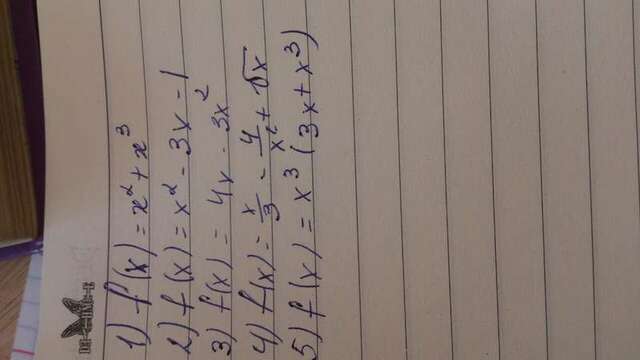 1) f(x) = x² + x³
2) f(x) = x² - 3x - 1
3) f(x) = 4x - 3x²
4) f(x) = x/3 - 4/x² + √x
5) f(x) = x³ (3x + x³)